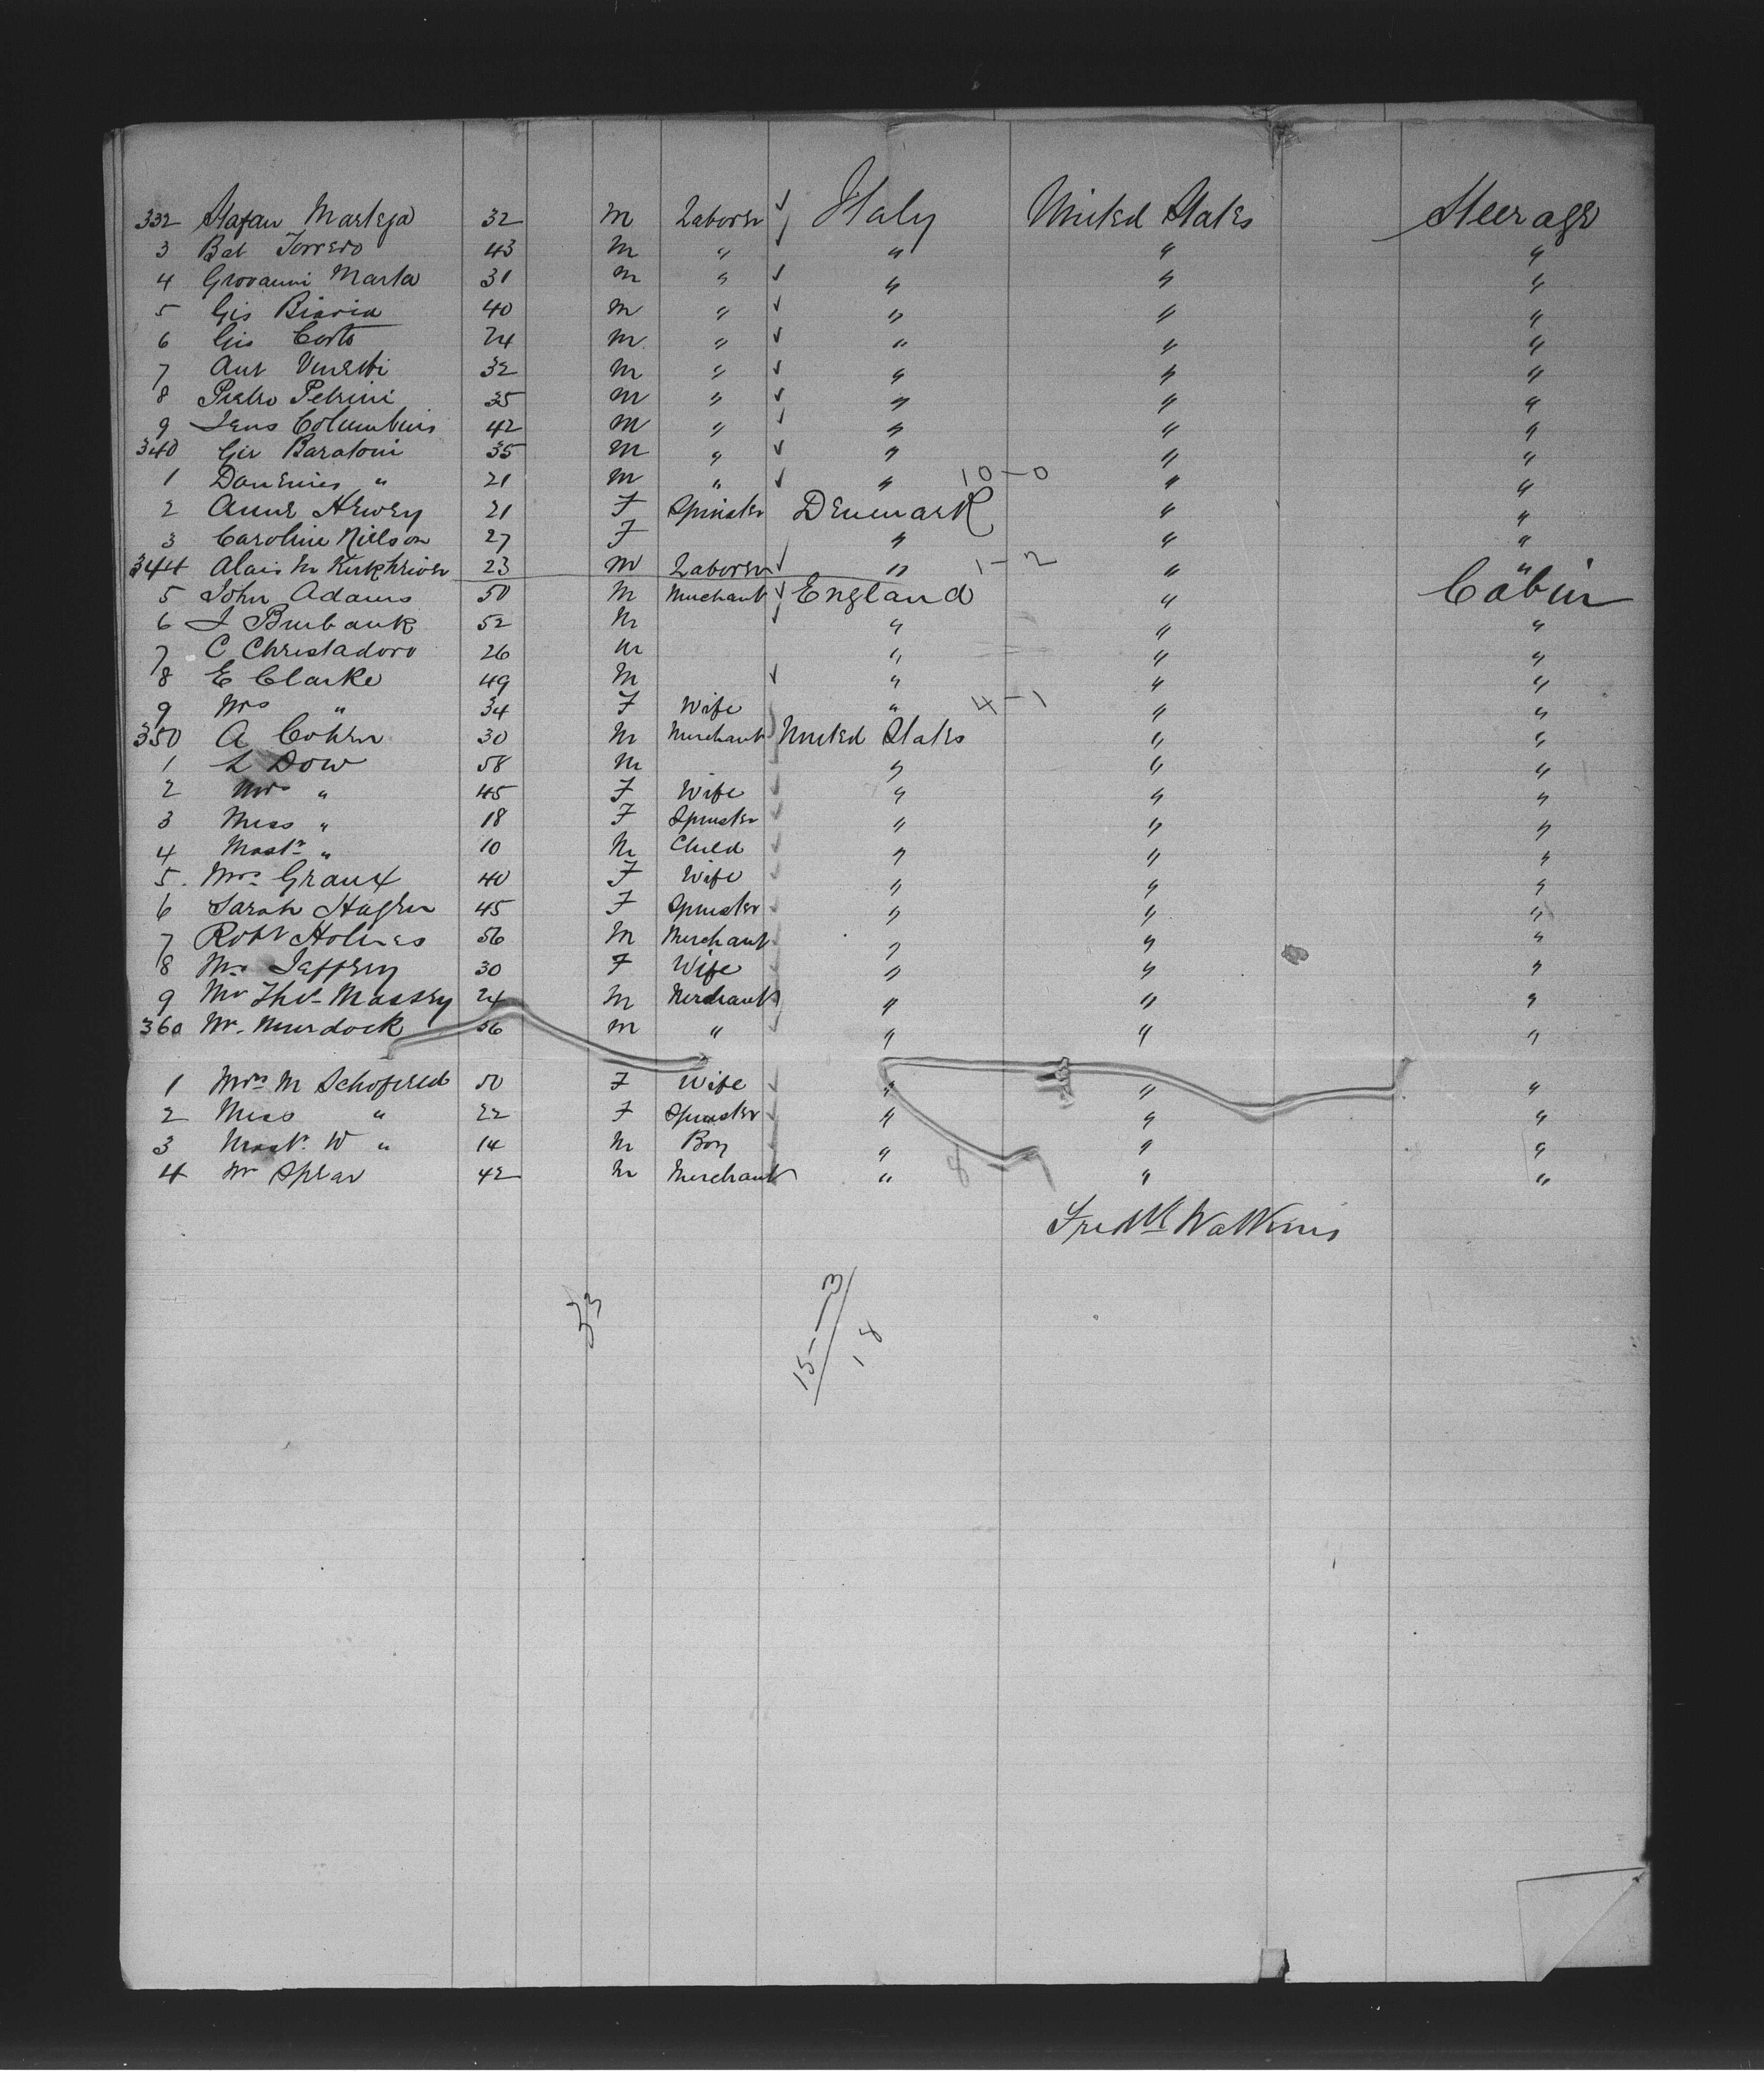 332 Stafan Markeja 32 M Laborer ✓ Italy United States Steerage
3 Bat Torrero 43 M " " " "
4 Giovanni Marta 31 M " ✓ " " "
5 Gis Biavia 40 M " ✓ " " "
6 Gis Corto 24 M " ✓ " " "
7 Ant Vinetti 32 M " ✓ " " "
8 Pietro Petrini 35 M " ✓ " " "
9 Jens Columbini 42 M " ✓ " " "
340 Gir Baratoni 35 M " ✓ " " "
1 " 21 M " ✓ " 10-0 " "
2 Anne Hewey 21 F Spinster Denmark " "
3 Caroline Nielson 27 F " " "
344 23 M Laborer ✓ " 1-2 " "
5 John Adams 50 M Merchant ✓ England " Cabin
6 J Burbank 52 M ✓ " " "
7 C Christadoro 26 M " " "
8 E Clarke 49 M ✓ " " "
9 Mrs " 34 F Wife " 4-1 " "
350 A Cohen 30 M Merchant United States " "
1 L Dow 58 M " " "
2 Mrs " 45 F Wife ✓ " " "
3 Miss " 18 F Spinster ✓ " " "
4 Mastr " 10 M Child ✓ " " "
5. Mrs Graux 40 F Wife ✓ " " "
6 Sarah Hagen 45 F Spinster ✓ " " "
7 Robt Holmes 56 M Merchant " " "
8 Mrs Jaffrey 30 F Wife ✓ " " "
9 Mr Thos Massey 24 M Merchant " " "
360 Mr. Murdock 56 M " ✓ " " "
1 Mrs M Schofield 50 F Wife ✓ " " "
2 Miss " 22 F Spinster ✓ " " "
3 Mast. W " 14 M Boy ✓ " " "
4 Mr Spear 42 M Merchant " 8-7 " "
Fredk Watkins
33
15-3
18